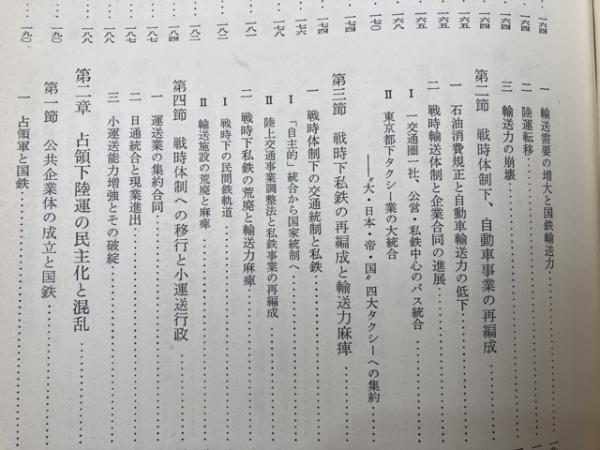 一六四
一六四
一六四
一六五
一六五
一六五
一六八
一七〇
一七四
一七四
一七六
一七八
一八一
一八一
一八二
一八四
一八七
一八七
一八八
一八八
一九〇
一九〇
一 輸送需要の増大と国鉄輸送力
二 陸運転移
三 輸送力の崩壊
第二節 戦時体制下、自動車事業の再編成
一 石油消費規正と自動車輸送力の低下
二 戦時輸送体制と企業合同の進展
Ⅰ 一交通圏一社、公営・私鉄中心のバス統合
Ⅱ 東京都下タクシー業の大統合
――〝大・日本・帝・国〟四大タクシーへの集約
第三節 戦時下私鉄の再編成と輸送力麻痺
一 戦時体制下の交通統制と私鉄
Ⅰ 「自主的」統合から国家統制へ
Ⅱ 陸上交通事業調整法と私鉄事業の再編成
二 戦時下私鉄の荒廃と輸送力麻痺
Ⅰ 戦時下の民間鉄軌道
Ⅱ 輸送施設の荒廃と麻痺
第四節 戦時体制への移行と小運送行政
一 運送業の集約合同
二 日通統合と現業進出
三 小運送能力増強とその破綻
第二章 占領下陸運の民主化と混乱
第一節 公共企業体の成立と国鉄
一 占領軍と国鉄